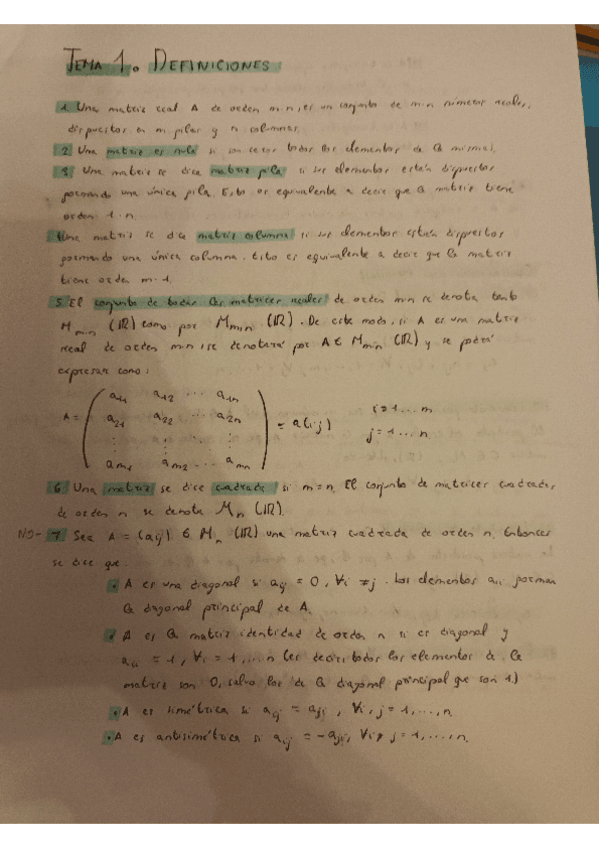 TEMA 1. DEFINICIONES:
1. Una matriz real A de orden m·n, es un conjunto de m·n números reales,
dispuestos en m filas y n columnas.
2. Una matriz es nula si son ceros todos los elementos de la misma.
3. Una matriz se dice matriz fila si sus elementos están dispuestos
formando una única fila. Esto es equivalente a decir que la matriz tiene
orden 1·n.
4. Una matriz se dice matriz columna si sus elementos están dispuestos
formando una única columna. Esto es equivalente a decir que la matriz
tiene orden m·1.
5. El conjunto de todas las matrices reales de orden m·n se denota tanto
M m·n (IR) como por M m×n (IR). De este modo, si A es una matriz
real de orden m·n, se denotará por A ∈ M m·n (IR) y se podrá
expresar como:
A = ( a11 a12 ... a1n
a21 a22 ... a2n
⋮ ⋮ ⋮
am1 am2 ... amn ) = a(i·j) i=1...m
j=1...n
6. Una matriz se dice cuadrada si m=n. El conjunto de matrices cuadradas
de orden n se denota Mn (IR).
NO- 7. Sea A = (aij) ∈ Mn (IR) una matriz cuadrada de orden n. Entonces
se dice que:
• A es una diagonal si aij = 0, ∀i ≠ j. Los elementos aii forman
la diagonal principal de A.
• A es la matriz identidad de orden n si es diagonal y
aii = 1, ∀i = 1,...n (es decir, todos los elementos de la
matriz son 0, salvo los de la diagonal principal que son 1.)
• A es simétrica si aij = aji, ∀i,j = 1,...,n.
• A es antisimétrica si aij = -aji, ∀i, j = 1,...,n.